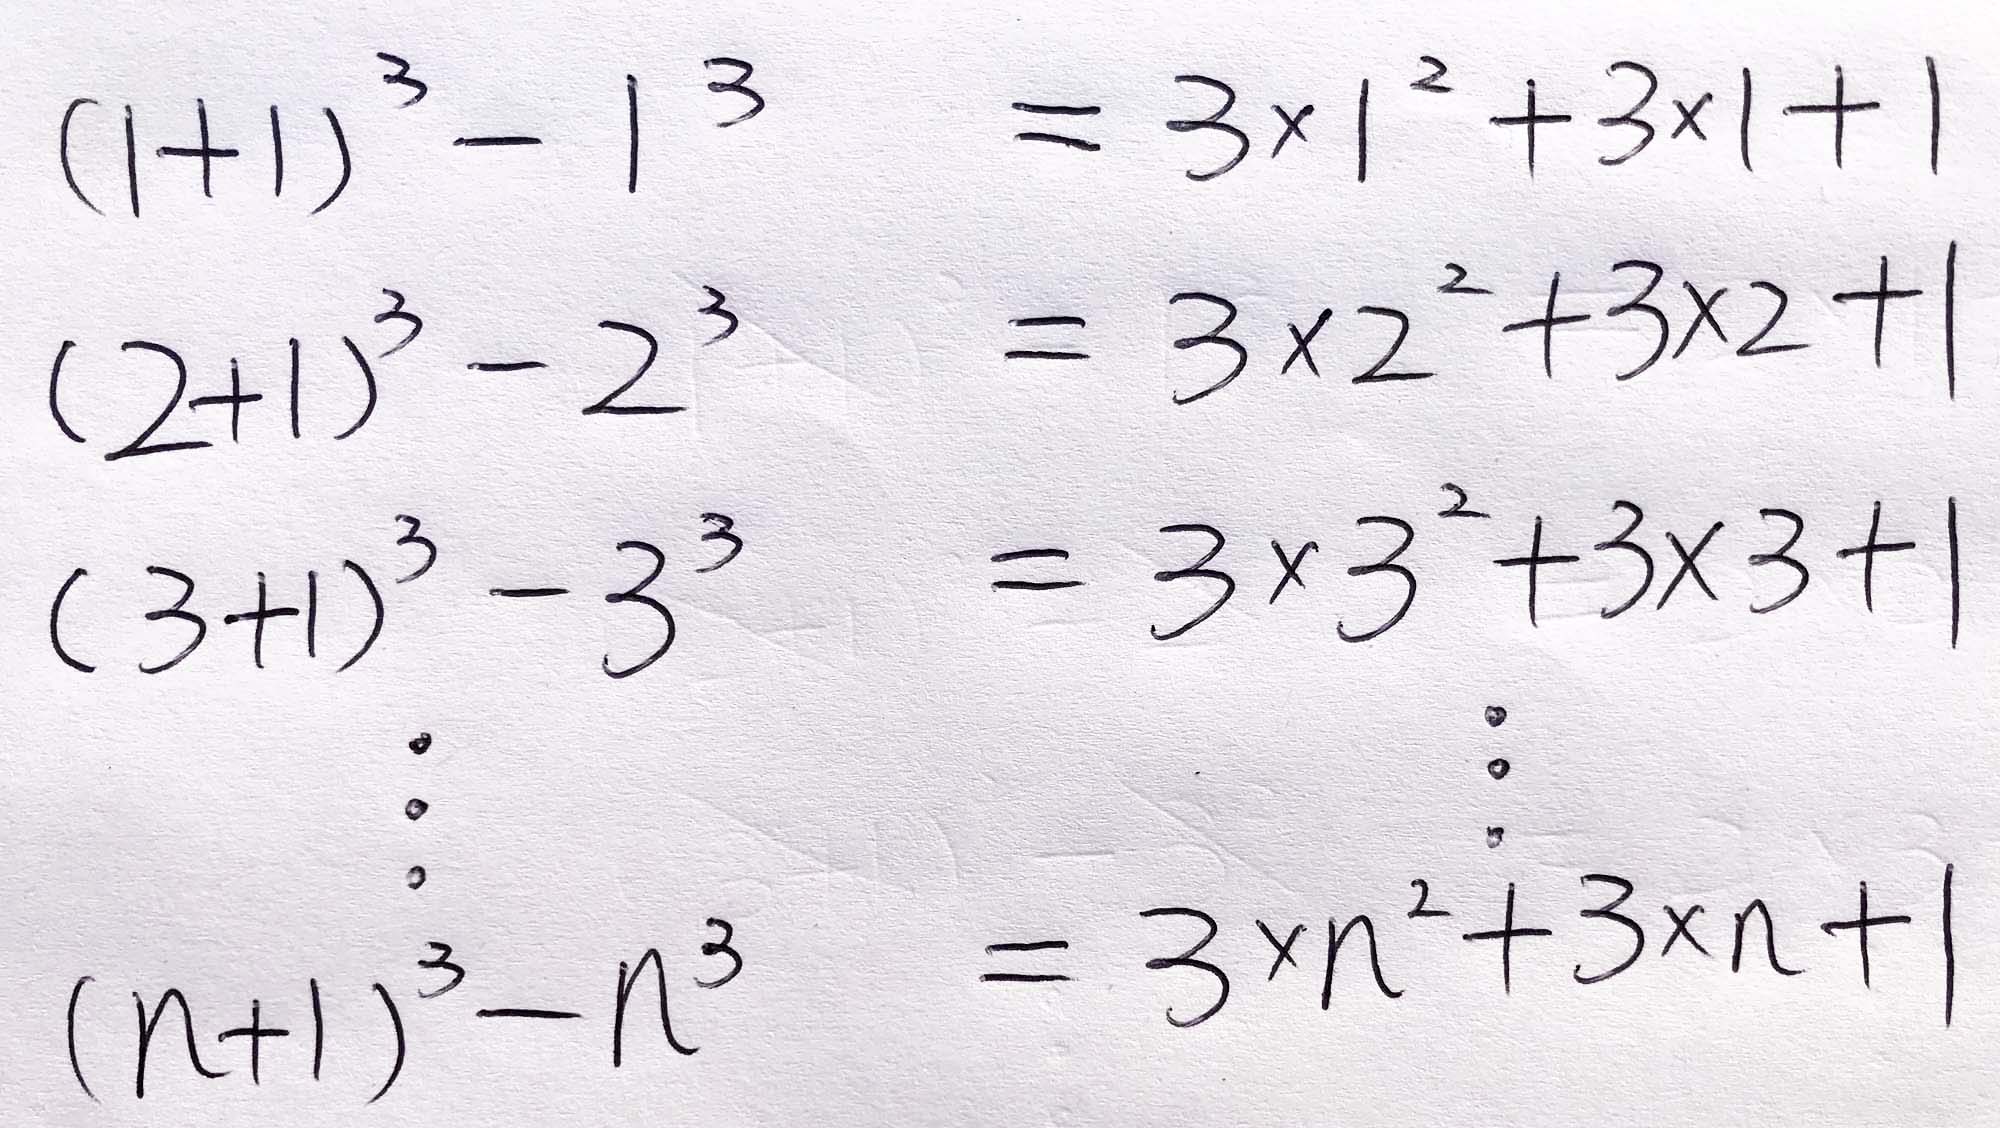 (1+1)³ - 1³ = 3×1² + 3×1 + 1
(2+1)³ - 2³ = 3×2² + 3×2 + 1
(3+1)³ - 3³ = 3×3² + 3×3 + 1
⋮ ⋮
(n+1)³ - n³ = 3×n² + 3×n + 1